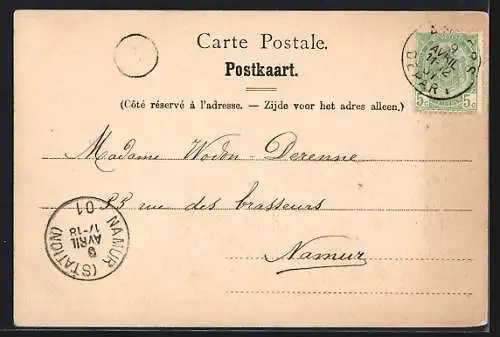 Carte Postale.
Postkaart.
(Côté réservé à l'adresse. — Zijde voor het adres alleen.)
5c 5c
9
AVRIL
DEPART
Madame Wodon-Derenne
55 rue des brasseurs
Namur
NAMUR (STATION)
9
AVRIL
17-18
01